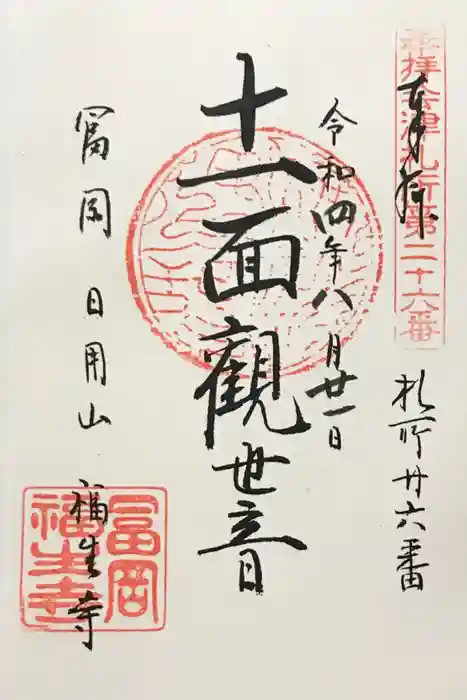 奉拝会津札所第二十六番
奉拝
札所廿六番
令和四年八月廿一日
十一面観世音
冨岡 日用山 福生寺
冨岡
福生寺